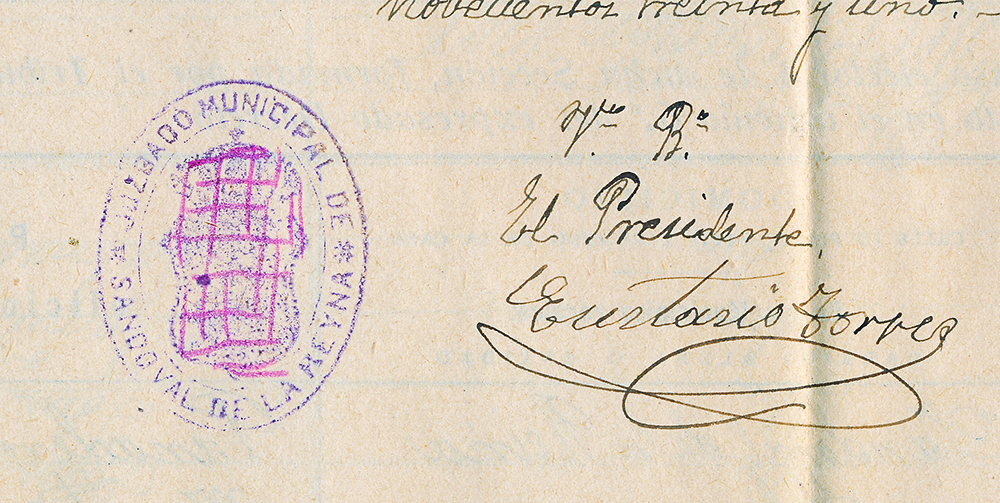 novecientos treinta y uno. -
JUZGADO MUNICIPAL DE
SANDOVAL DE LA REYNA
Vº Bº
El Presidente,
Eustasio Torres